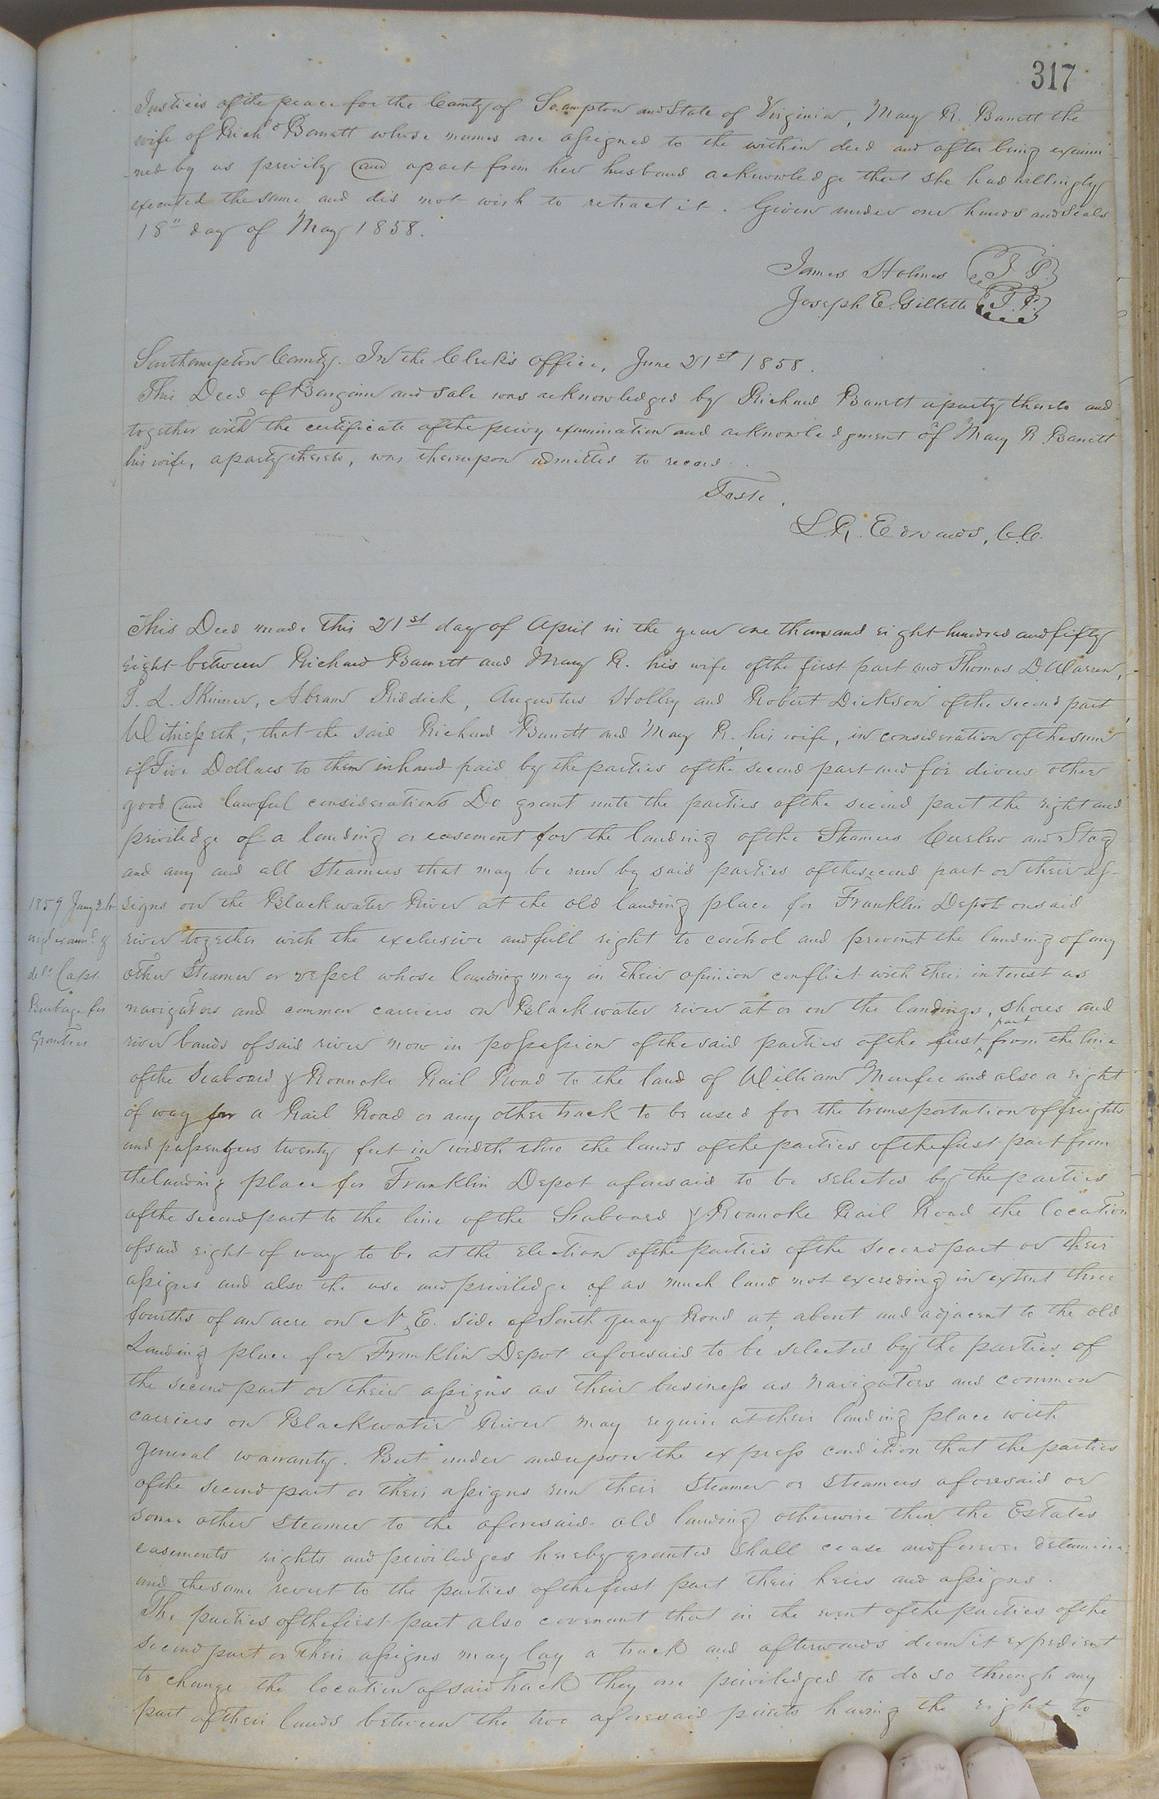 317
Justices of the peace for the County of So.ampton and State of Virginia, Mary R. Barrett the
wife of Richd Barrett whose names are assigned to the within deed and after being exami
ned by us privily and apart from her husband acknowledge that she had willingly
executed the same and did not wish to retract it. Given under our hands and seals
18th day of May 1858.
James Holmes J. P.
Joseph E. Gillette J. P.
Southampton County. In the Clerk's office, June 21st 1858.
This Deed of Bargain and sale was acknowledged by Richard Barrett a party thereto and
together with the certificate of the privy examination and acknowledgment of Mary R Barrett
his wife, a party thereto, was thereupon admitted to record.
Teste,
L. R. Edwards, C.C.
This Deed made this 21st day of April in the year one thousand eight hundred and fifty
eight between Richard Barrett and Mary R. his wife of the first part and Thomas D. Warren,
T. L. Skinner, Abram Riddick, Augustus Holley and Robert Dickson of the second part
Witnesseth, that the said Richard Barrett and Mary R. his wife, in consideration of the sum
of Five Dollars to them in hand paid by the parties of the second part and for divers other
good and lawful considerations Do grant unto the parties of the second part the right and
priviledge of a landing or easement for the landing of the Steamers Curlew and Stag
and any and all Steamers that may be run by said parties of the second part or their as-
signs on the Blackwater River at the old landing place for Franklin Depot on said
river together with the exclusive and full right to control and prevent the landing of any
other Steamer or vessel whose landing may in their opinion conflict with their interest as
navigators and common carriers on Blackwater river at or on the landings, shores and
river banks of said river now in possession of the said parties of the first part from the line
of the Seaboard & Roanoke Rail Road to the land of William Murfee and also a right
of way for a Rail Road or any other track to be used for the transportation of freights
and passengers twenty feet in width thro the lands of the parties of the first part from
the landing place for Franklin Depot aforesaid to be selected by the parties
of the second part to the line of the Seaboard & Roanoke Rail Road the location
of said right of way to be at the election of the parties of the second part or their
assigns and also the use and priviledge of as much land not exceeding in extent three
fourths of an acre on N. E. side of South quay Road at, about and adjacent to the old
Landing place for Franklin Depot aforesaid to be selected by the parties of
the second part or their assigns as their business as navigators and common
carriers on Blackwater River may require at their landing place with
general warranty. But under and upon the express condition that the parties
of the second part or their assigns run their Steamer or Steamers aforesaid or
some other steamer to the aforesaid old landing otherwise then the Estates
easements rights and priviledges hereby granted shall cease and forever determine
and the same revert to the parties of the first part their heirs and assigns.
The parties of the first part also covenant that in the event of the parties of the
second part or their assigns may lay a track and afterwards deem it expedient
to change the location of said Track they are priviledged to do so through any
part of their lands between the two aforesaid points having the right to
1859 Jany
examd. &
deld Capt.
Burbage for
Grantees